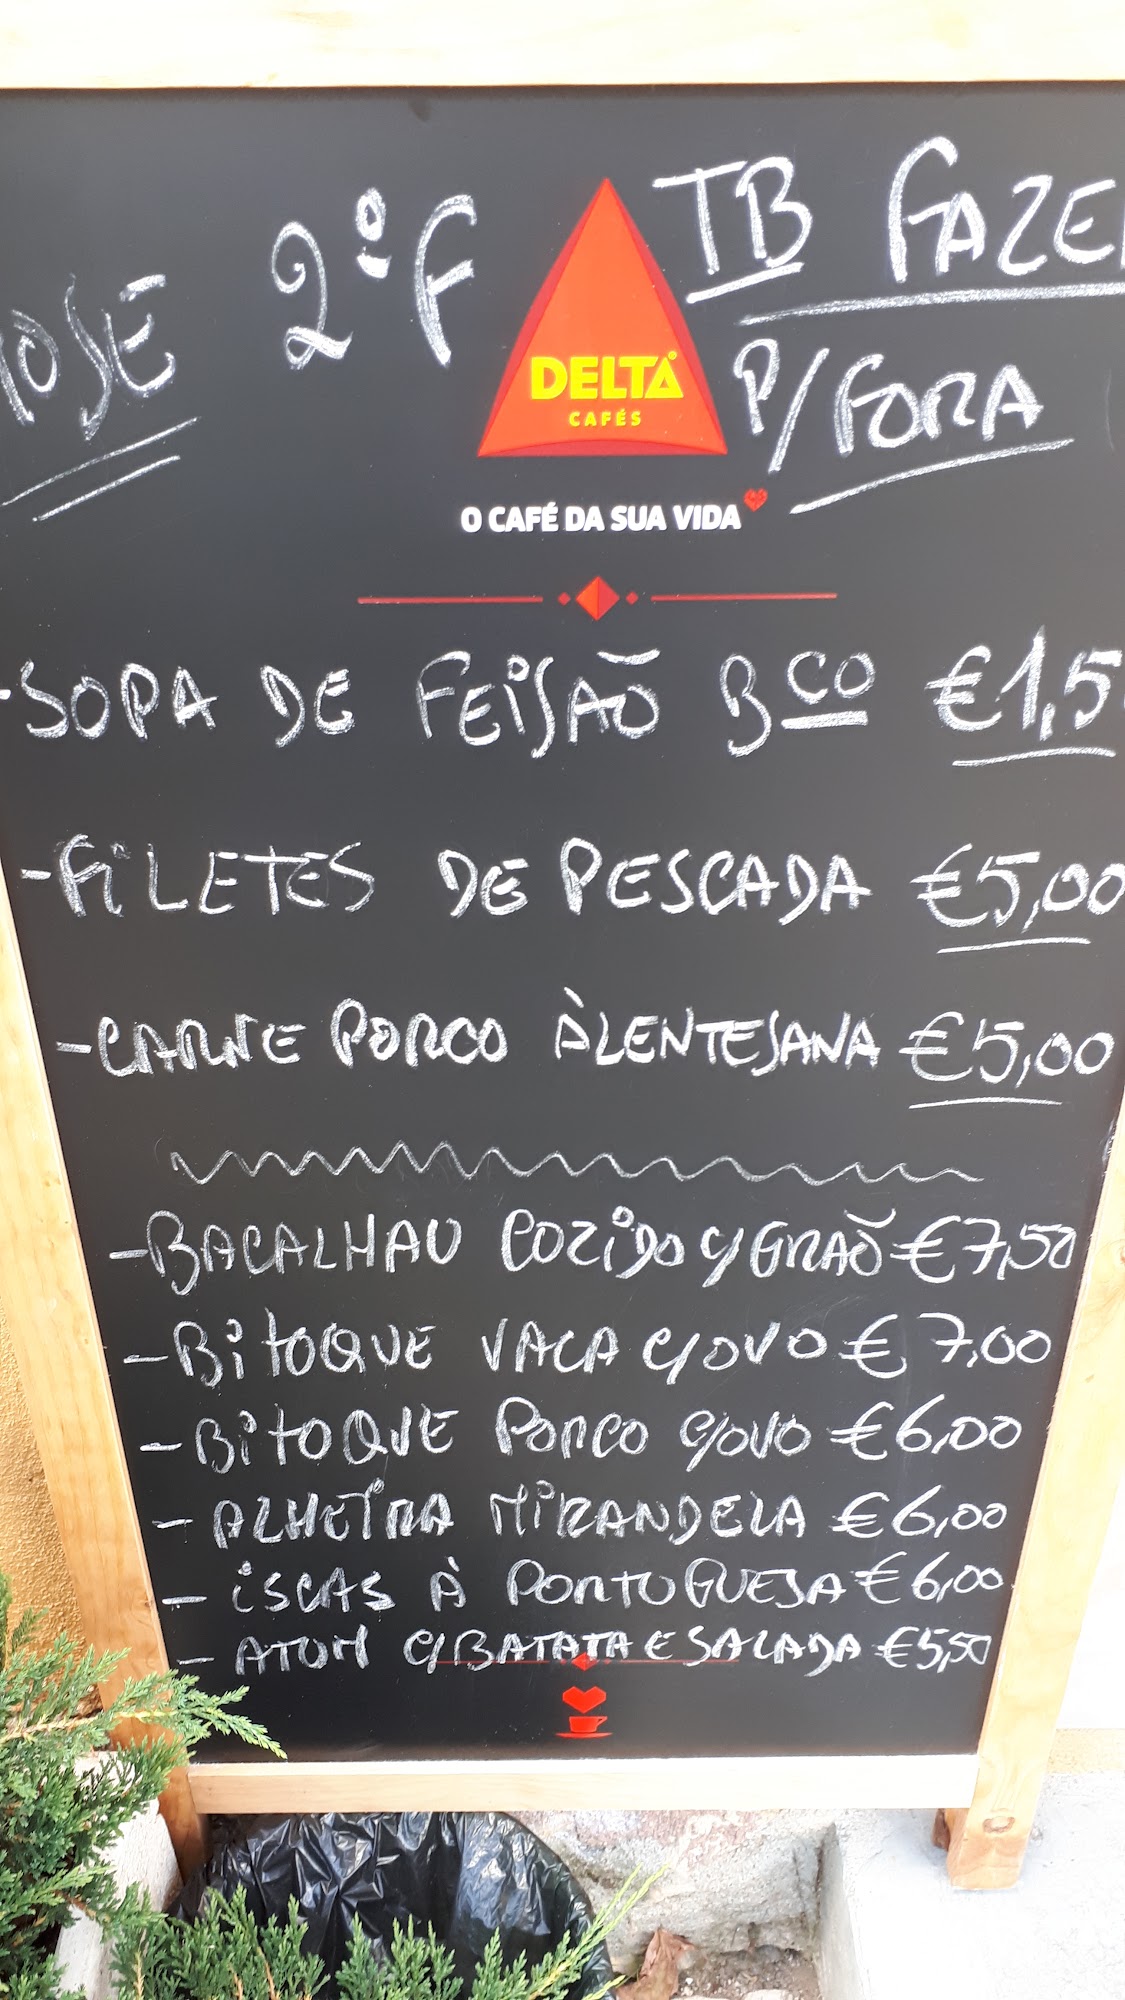 HOJE 2ºF
TB FAZE
P/FORA
DELTA
CAFÉS
O CAFÉ DA SUA VIDA
-SOPA DE FEIJÃO BCO €1,5
-FILETES DE PESCADA €5,00
-CARNE PORCO ÀLENTEJANA €5,00
-BACALHAU COZIDO C/GRÃO €7,50
-BITOQUE VACA C/OVO € 7,00
-BITOQUE PORCO C/OVO €6,00
-ALHEIRA MIRANDELA €6,00
-ISCAS À PORTUGUESA €6,00
-ATUM C/BATATA E SALADA €5,50